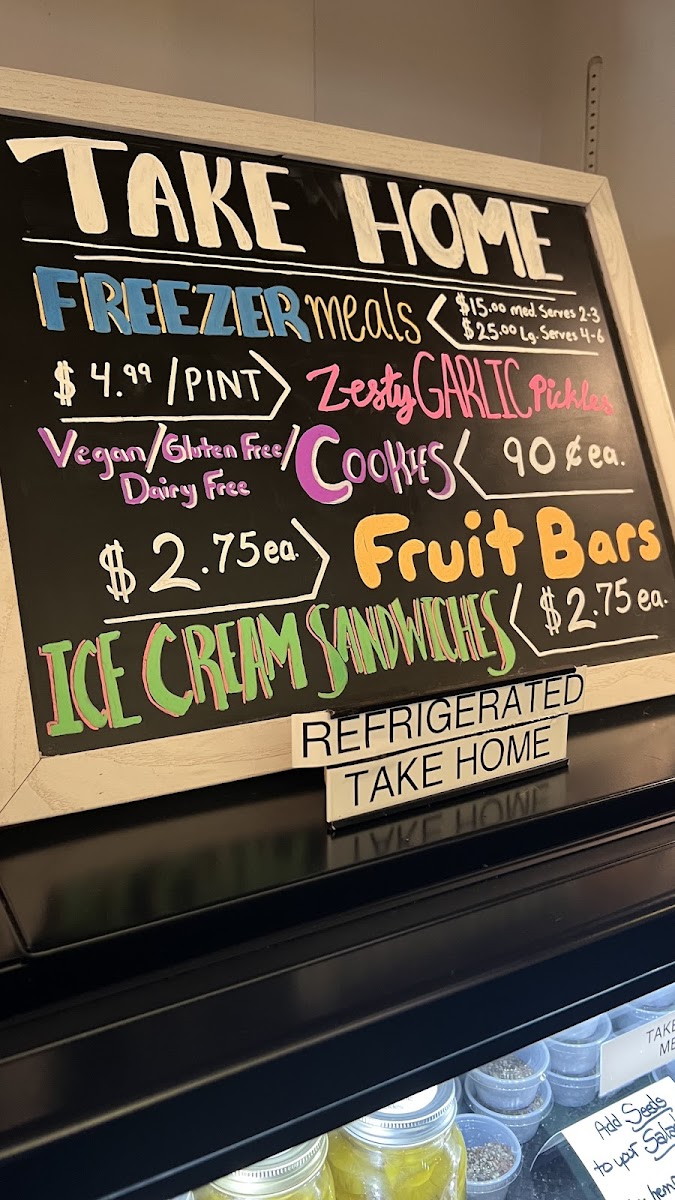 TAKE HOME
FREEZER meals
$15.00 med. Serves 2-3
$25.00 Lg. Serves 4-6
$4.99/PINT Zesty GARLIC Pickles
Vegan/Gluten Free/
Dairy Free
COOKIES 90¢ ea.
$2.75 ea. Fruit Bars
ICE CREAM SANDWICHES $2.75 ea.
REFRIGERATED
TAKE HOME
TAKE HOME
TAKE
Add Seeds
to your